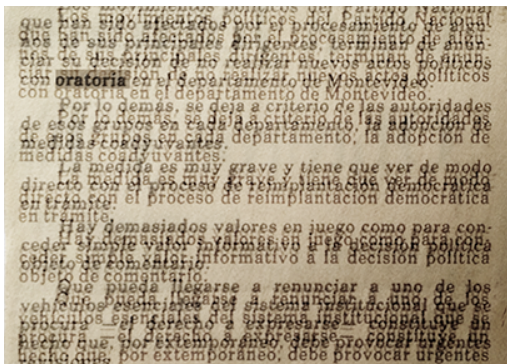 Los movimientos políticos del Partido Nacional
que han sido afectados por el procesamiento de algu-
nos de sus principales dirigentes, terminan de anun-
ciar su decisión de no realizar nuevos actos políticos
con oratoria en el departamento de Montevideo.
Por lo demás, se deja a criterio de las autoridades
de esos grupos en cada departamento, la adopción de
medidas coadyuvantes.
La medida es muy grave y tiene que ver de modo
directo con el proceso de reimplantación democrática
en trámite.
Hay demasiados valores en juego como para con-
ceder simple valor informativo a la decisión política
objeto de comentario.
Que pueda llegarse a renunciar a uno de los
vehículos esenciales del sistema institucional que se
procura —el derecho a expresarse— constituye un
hecho que, por extemporáneo, debe provocar urgentes